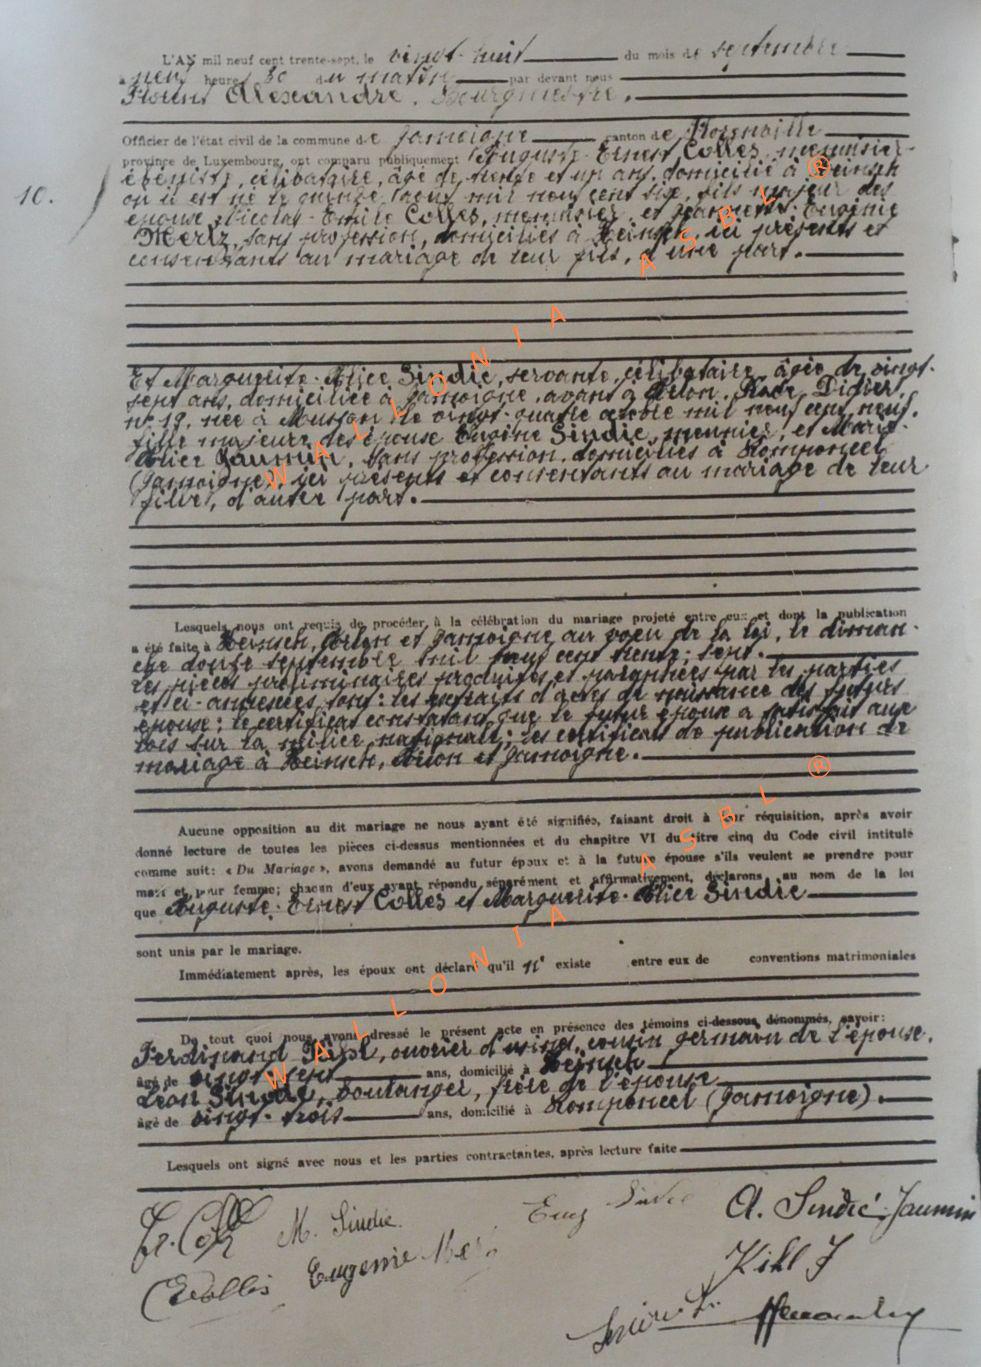 L'AN mil neuf cent trente-sept, le vingt-huit du mois de septembre
à neuf heures 30 du matin par devant nous
Florent Alexandre, Bourgmestre,
Officier de l'état civil de la commune de Jamoigne canton de Florenville
province de Luxembourg, ont comparu publiquement Auguste-Ernest Collès, menuisier-
10.
ébéniste, célibataire, âgé de trente et un ans, domicilié à Heinsch
où il est né le quinze mil neuf cent six, fils majeur des
époux Nicolas-Emile Collès, menuisier, et Jeannette-Eugénie
Mertz, sans profession, domiciliés à Heinsch, ici présents et
consentants au mariage de leur fils, d'une part.
Et Marguerite-Alice Sindic, servante, célibataire, âgée de vingt-
sept ans, domiciliée à Jamoigne, avant à Arlon, Didier,
n° 19, née à Musson le vingt-quatre mil neuf cent neuf,
fille majeure des époux Eugène Sindic, meunier, et Marie-
Alice Jaumin, sans profession, domiciliés à Romponcel
(Jamoigne), ici présents et consentants au mariage de leur
fille, d'autre part.
Lesquels nous ont requis de procéder à la célébration du mariage projeté entre eux et dont la publication
a été faite à Heinsch, Arlon et Jamoigne au voeu de la loi, le diman-
che douze septembre mil neuf cent trente-sept.
Les pièces préliminaires produites et paraphées par les parties
et ci-annexées, sont: les extraits d'actes de naissance des futurs
époux; le certificat constatant que le futur époux a satisfait aux
lois sur la milice nationale; les certificats de publication de
mariage à Heinsch, Arlon et Jamoigne.
Aucune opposition au dit mariage ne nous ayant été signifiée, faisant droit à leur réquisition, après avoir
donné lecture de toutes les pièces ci-dessus mentionnées et du chapitre VI du titre cinq du Code civil intitulé
comme suit: « Du Mariage », avons demandé au futur époux et à la future épouse s'ils veulent se prendre pour
mari et pour femme; chacun d'eux ayant répondu séparément et affirmativement, déclarons, au nom de la loi
que Auguste-Ernest Collès et Marguerite-Alice Sindic
sont unis par le mariage.
Immédiatement après, les époux ont déclaré qu'il n' existe entre eux de conventions matrimoniales
De tout quoi nous avons dressé le présent acte en présence des témoins ci-dessous dénommés, savoir:
Ferdinand ouvrier d'usine, cousin germain de l'épouse,
âgé de vingt-sept ans, domicilié à Heinsch
Léon Sindic, boulanger, frère de l'épouse
âgé de vingt-trois ans, domicilié à Romponcel (Jamoigne).
Lesquels ont signé avec nous et les parties contractantes, après lecture faite
M. Sindic Eug Sindic A. Sindic-Jaumin
E Collès Eugenie Mertz Kihl F
WALLONIA ASBL ®
WALLONIA ASBL ®